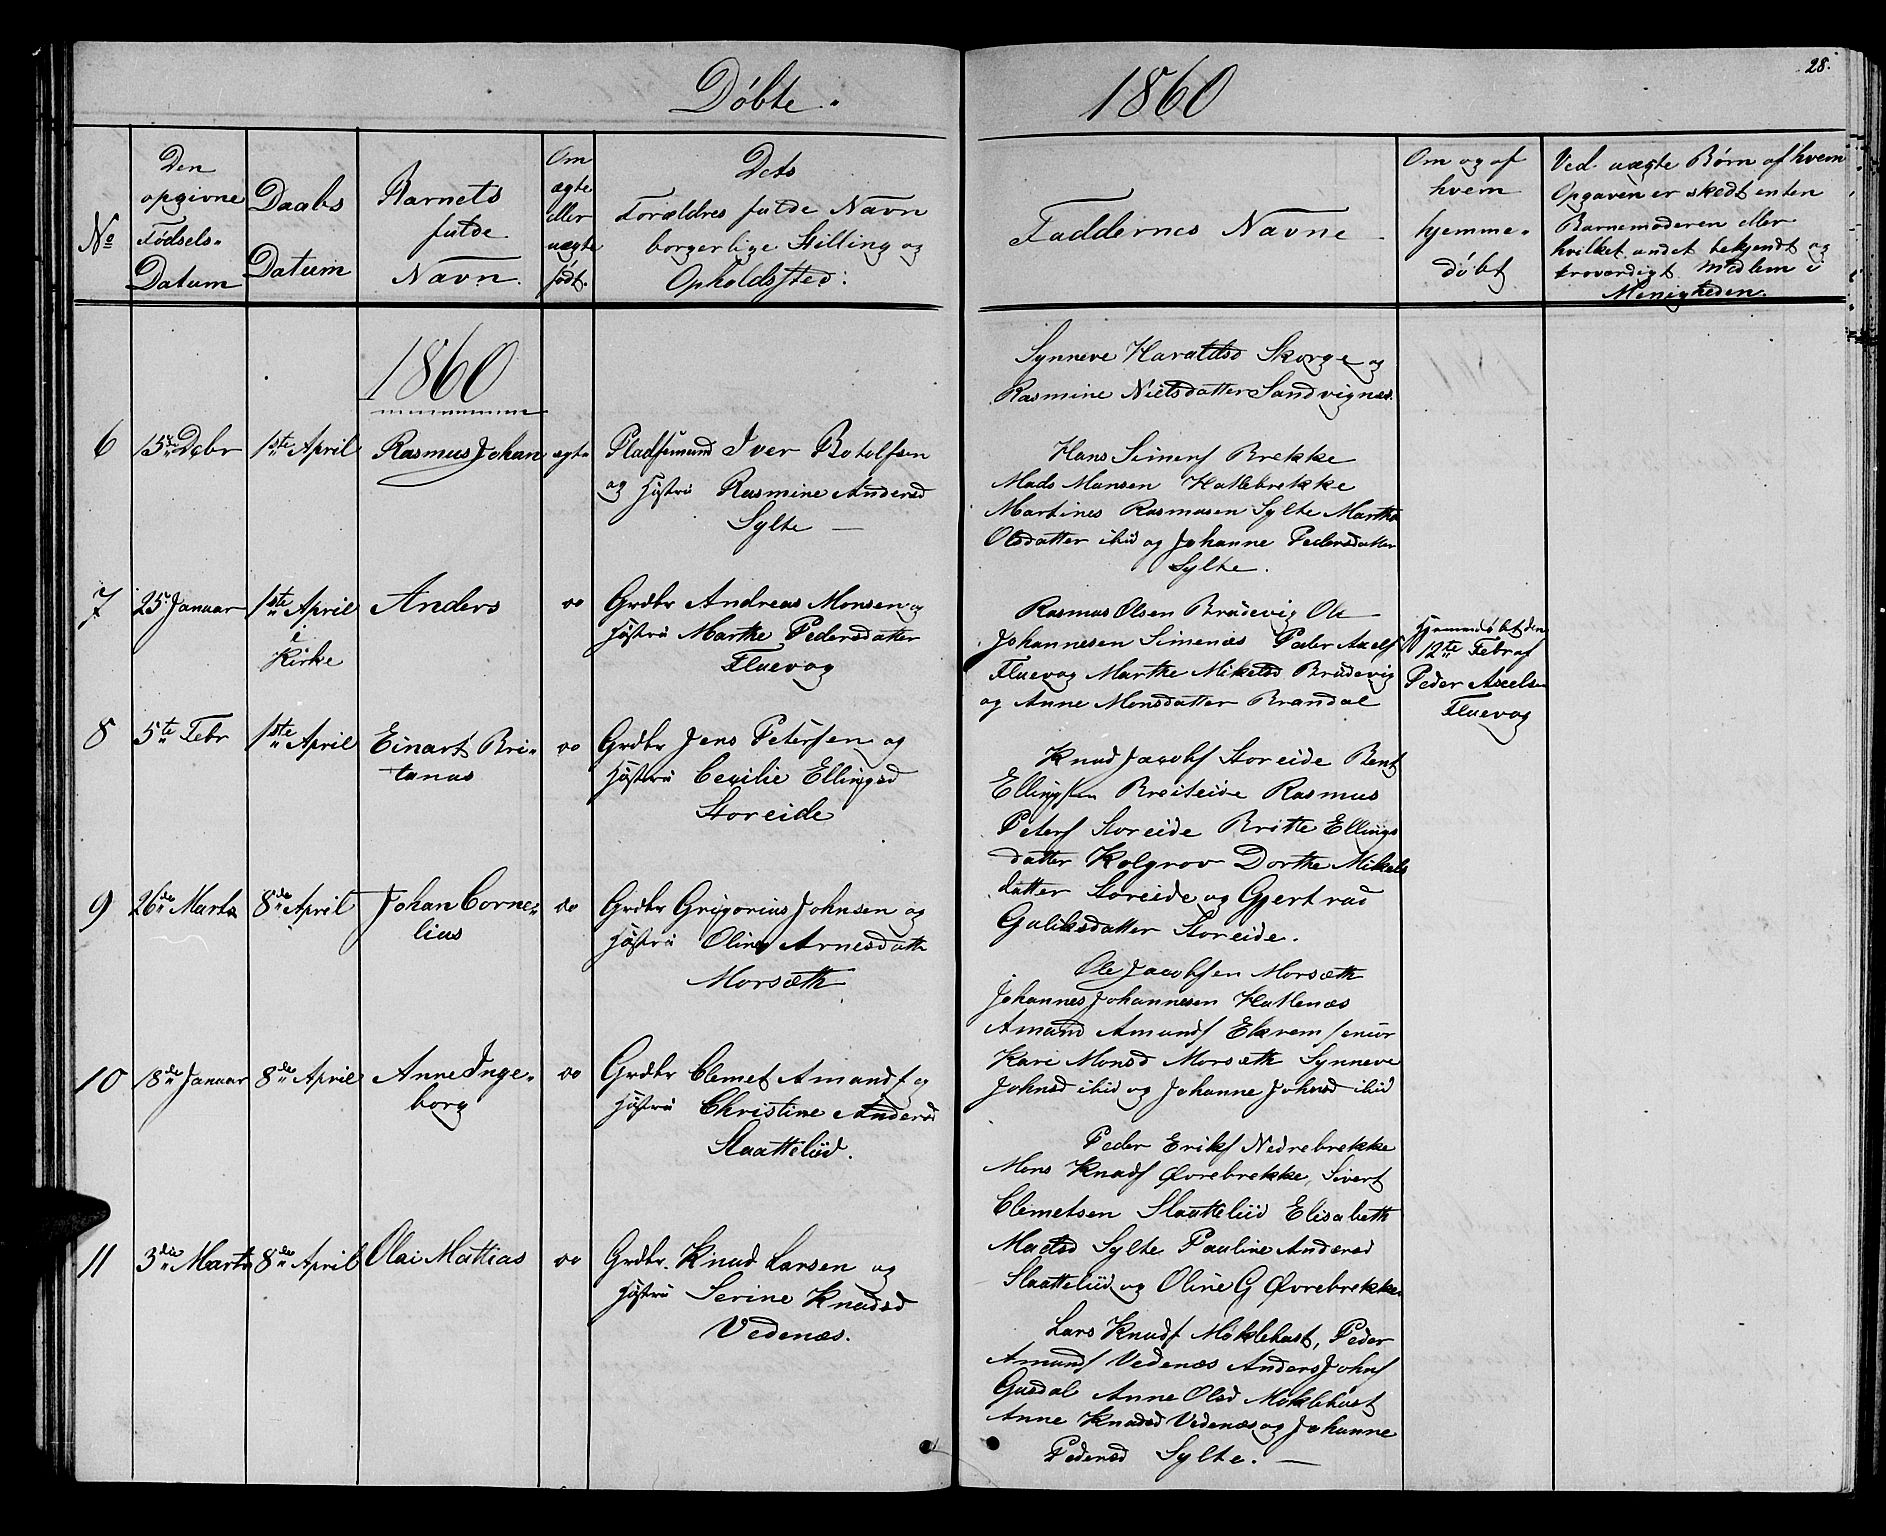 Döbte.
1860
28.
No
Den
opgivne
Födsels-
Datum
Daabs
Datum
Barnets
fulde
Navn.
Om
ægte
eller
uægte
født.
Dets
Forældres fulde Navn
borgerlige Stilling og
Opholdssted:
Faddernes Navne
Om og af
hvem
hjemme-
döbt
Ved uægte Børn af hvem
Opgaven er skedt enten
Barnemoderen eller
hvilket andet bekjendt og
troværdigt Medlem i
Menigheden.
1860
Synneve Haraldsd Skorge og
Rasmine Nielsdatter Sandvignæs.
6 15de Dcbr 1ste April Rasmus Johan ægte Pladsemand Iver Botolfsen
og Hustru Rasmine Andersd
Sylte —
Hans Simens Brekke
Mads Monsen Hallebrekke
Martines Rasmusen Sylte Marthe
Olsdatter ibid og Johanne Pedersdatter
Sylte.
7 25 Januar 1ste April
i
Kirke
Anders oo Grdbr Andreas Monsen og
Hustru Marthe Pedersdatter
Fluevog
Rasmus Olsen Brudevig Ole
Johannesen Simenæs Peder Axels
Fluevog Marthe Mikelsd Brudevig
og Anne Monsdatter Brandal
Hjemmedöbt den
12te Febr af
Peder Axelsen
Fluevog
8 5te Febr 1ste April Einart Bri-
tanus
oo Grdbr Jens Petersen og
Hustru Cecilie Ellingsd
Storeide
Knud Jacobs Storeide Bent
Ellingsen Breiteide Rasmus
Peters Storeide Britte Ellings
datter Kolgrov Dorthe Mikels
datter Storeide og Gjertrud
Guliksdatter Storeide.
9 26de Marts 8de April Johan Corne-
lius
oo Grdbr Grigorius Johnsen og
Hustru Oline Arnesdatte
Morsæth
Ole Jacobsen Morsæth
Johannes Johannesen Hallenæs
Amund Amunds Ekrem senior
Kari Monsd Morsæth Synneve
Johnsd ibid og Johanne Johnsd ibid
10 18de Januar 8de April Anne Inge-
borg
oo Grdbr Clemet Amunds og
Hustru Christine Andersd
Slaattelid.
Peder Eriks Nedrebrekke
Mons Knuds Øvrebrekke, Sivert
Clemetsen Slaattelid Elisabeth
Madsd Sylte Pauline Andersd
Slaattelid og Oline G Øvrebrekke.
11 3die Marts 8de April Olai Mattias oo Grdbr. Knud Larsen og
Hustru Serine Knudsd
Vedenæs.
Lars Knuds Møklebust, Peder
Amunds Vedenæs Anders Johns
Gusdal Anne Olsd Møklebust
Anne Knudsd Vedenæs og Johanne
Pedersd Sylte. —